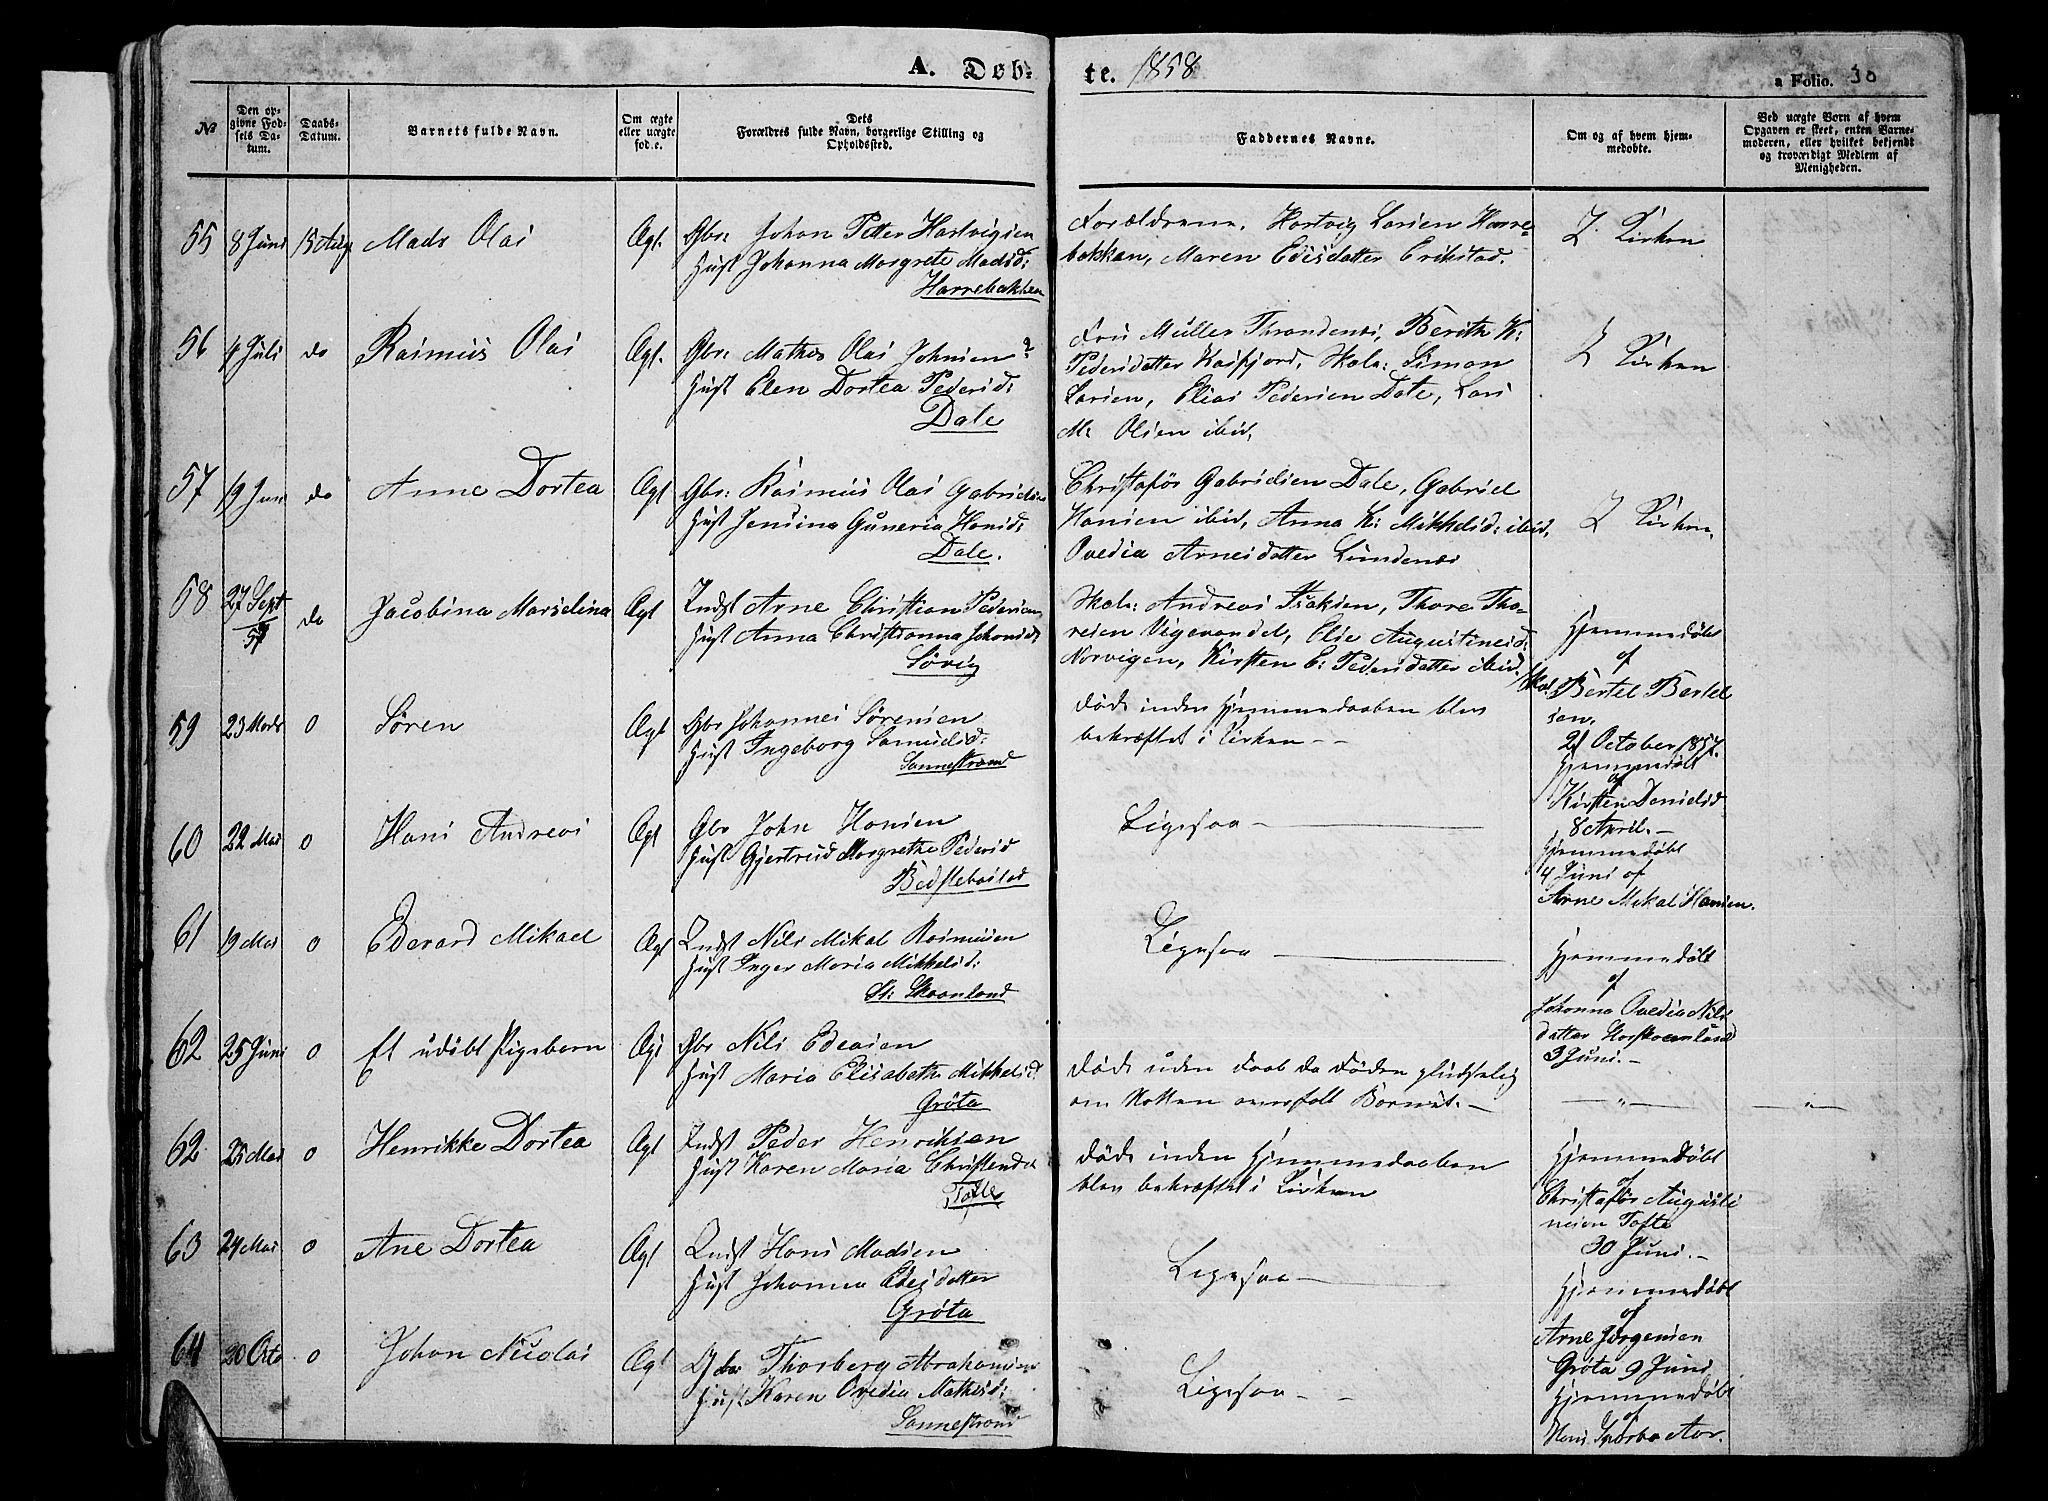 A. Døb-
te. 1858
a Folio. 30
№
Den op-
givne Fød-
sels Da-
tum.
Daabs-
Datum.
Barnets fulde Navn.
Om ægte
eller uægte
fød.e.
Dets
Forældres fulde Navn, borgerlige Stilling og
Opholdssted.
Faddernes Navne.
Om og af hvem hjem-
medøbte.
Ved uægte Børn af hvem
Opgaven er skeet, enten Barne-
moderen, eller hvilket bekjendt
og troværdigt Medlem af
Menigheden.
55 8 Juni 15 Aug Mads Olai Ægt. Gbr: Johan Petter Hartvigsen
Hust Johanna Margrete Madsd:
Harrebakken
Forældrene, Hartvig Larsen Harre-
bakken, Maren Edisdatter Erikstad.
I Kirken
56 4 Juli do Rasmus Olai Ægt. Gbr: Mathis Olai Johnsen?
Hust Elen Dortea Pedersd:
Dale
Fru Müller Throndenæs, Berith K:
Pedersdatter Kasfjord, Skoleh: Simon
Larsen, Elias Pedersen Dale, Lars
M: Olsen ibid,
I Kirken
57 19 Juni do Anne Dortea Ægt Gbr: Rasmus Olai Gabrielsen
Hust Jensina Guneria Hansd:
Dale.
Christofør Gabrielsen Dale, Gabriel
Hansen ibid, Anna K: Mikkelsd: ibid,
Ovedia Arnesdatter Lundenæs
I Kirken.
58 27 Sept
57 do Jacobina Marselina Ægt Indst Arne Christian Pedersen
Hust Anna Christianna Johansd:
Sørvig
Skoleh: Andreas Isaksen, Thore Tho-
resen Vigevandet, Elie Augustinusd:
Norvigen, Kirsten E: Pedersdatter ibid.
Hjemmedøbt
af
Skol. Bertel Bertel
sen,
21 October 1857.
59 23 Marts 0 Søren Ægt Gbr Johannes Sørensen
Hust Ingeborg Samuelsd:
Sannestrand
døde inden Hjemmedaaben blev
bekræftet i Kirken - -
Hjemmedøbt
af
Kirsten Danielsd
8 April. -
60 22 Mai 0 Hans Andreas Ægt Gbr John Hansen
Hust Gjertrud Margrethe Pedersd
Bedstebostad
Ligesaa -
Hjemmedøbt
4 Juni af
Arne Mikal Hansen.
61 19 Mai 0 Edevard Mikael Ægt Indst Nils Mikal Rasmusen
Hust Inger Maria Mikkelsd:
St: Skaanland
Ligesaa
Hjemmedøbt
af
Johanna Ovedia Nils
datter
3 Juni. -
62 25 Juni 0 Et udøbt Pigebarn Ægt Gbr Nils Edeasen
Hust Maria Elisabeth Mikkelsd
Grøta
døde uden daab da døden pludselig
om Natten overfalt Barnet. -
— " — — " —
62 23 Mai 0 Henrikke Dortea Ægt Indst Peder Henriksen
Hust Karen Maria Christensd
Tofte
døde inden Hjemmedaaben
blev bekræftet i Kirken
Hjemmedøbt
af
Christofør Augusti
nusen Tofte
30 Juni. -
63 24 Mai 0 Ane Dortea Ægt Indst Hans Madsen
Hust Johanna Edisdatter
Grøta
Ligesaa -
Hjemmedøbt
af
Arne Jørgensen
Grøta 9 Juni
64 20 Octo 0 Johan Nicolai Ægt Gbr Thorberg Abrahamsen
Hust Karen Ovedia Mathisd:
Sannestrand
Ligesaa - -
Hjemmedøbt
af
Hans